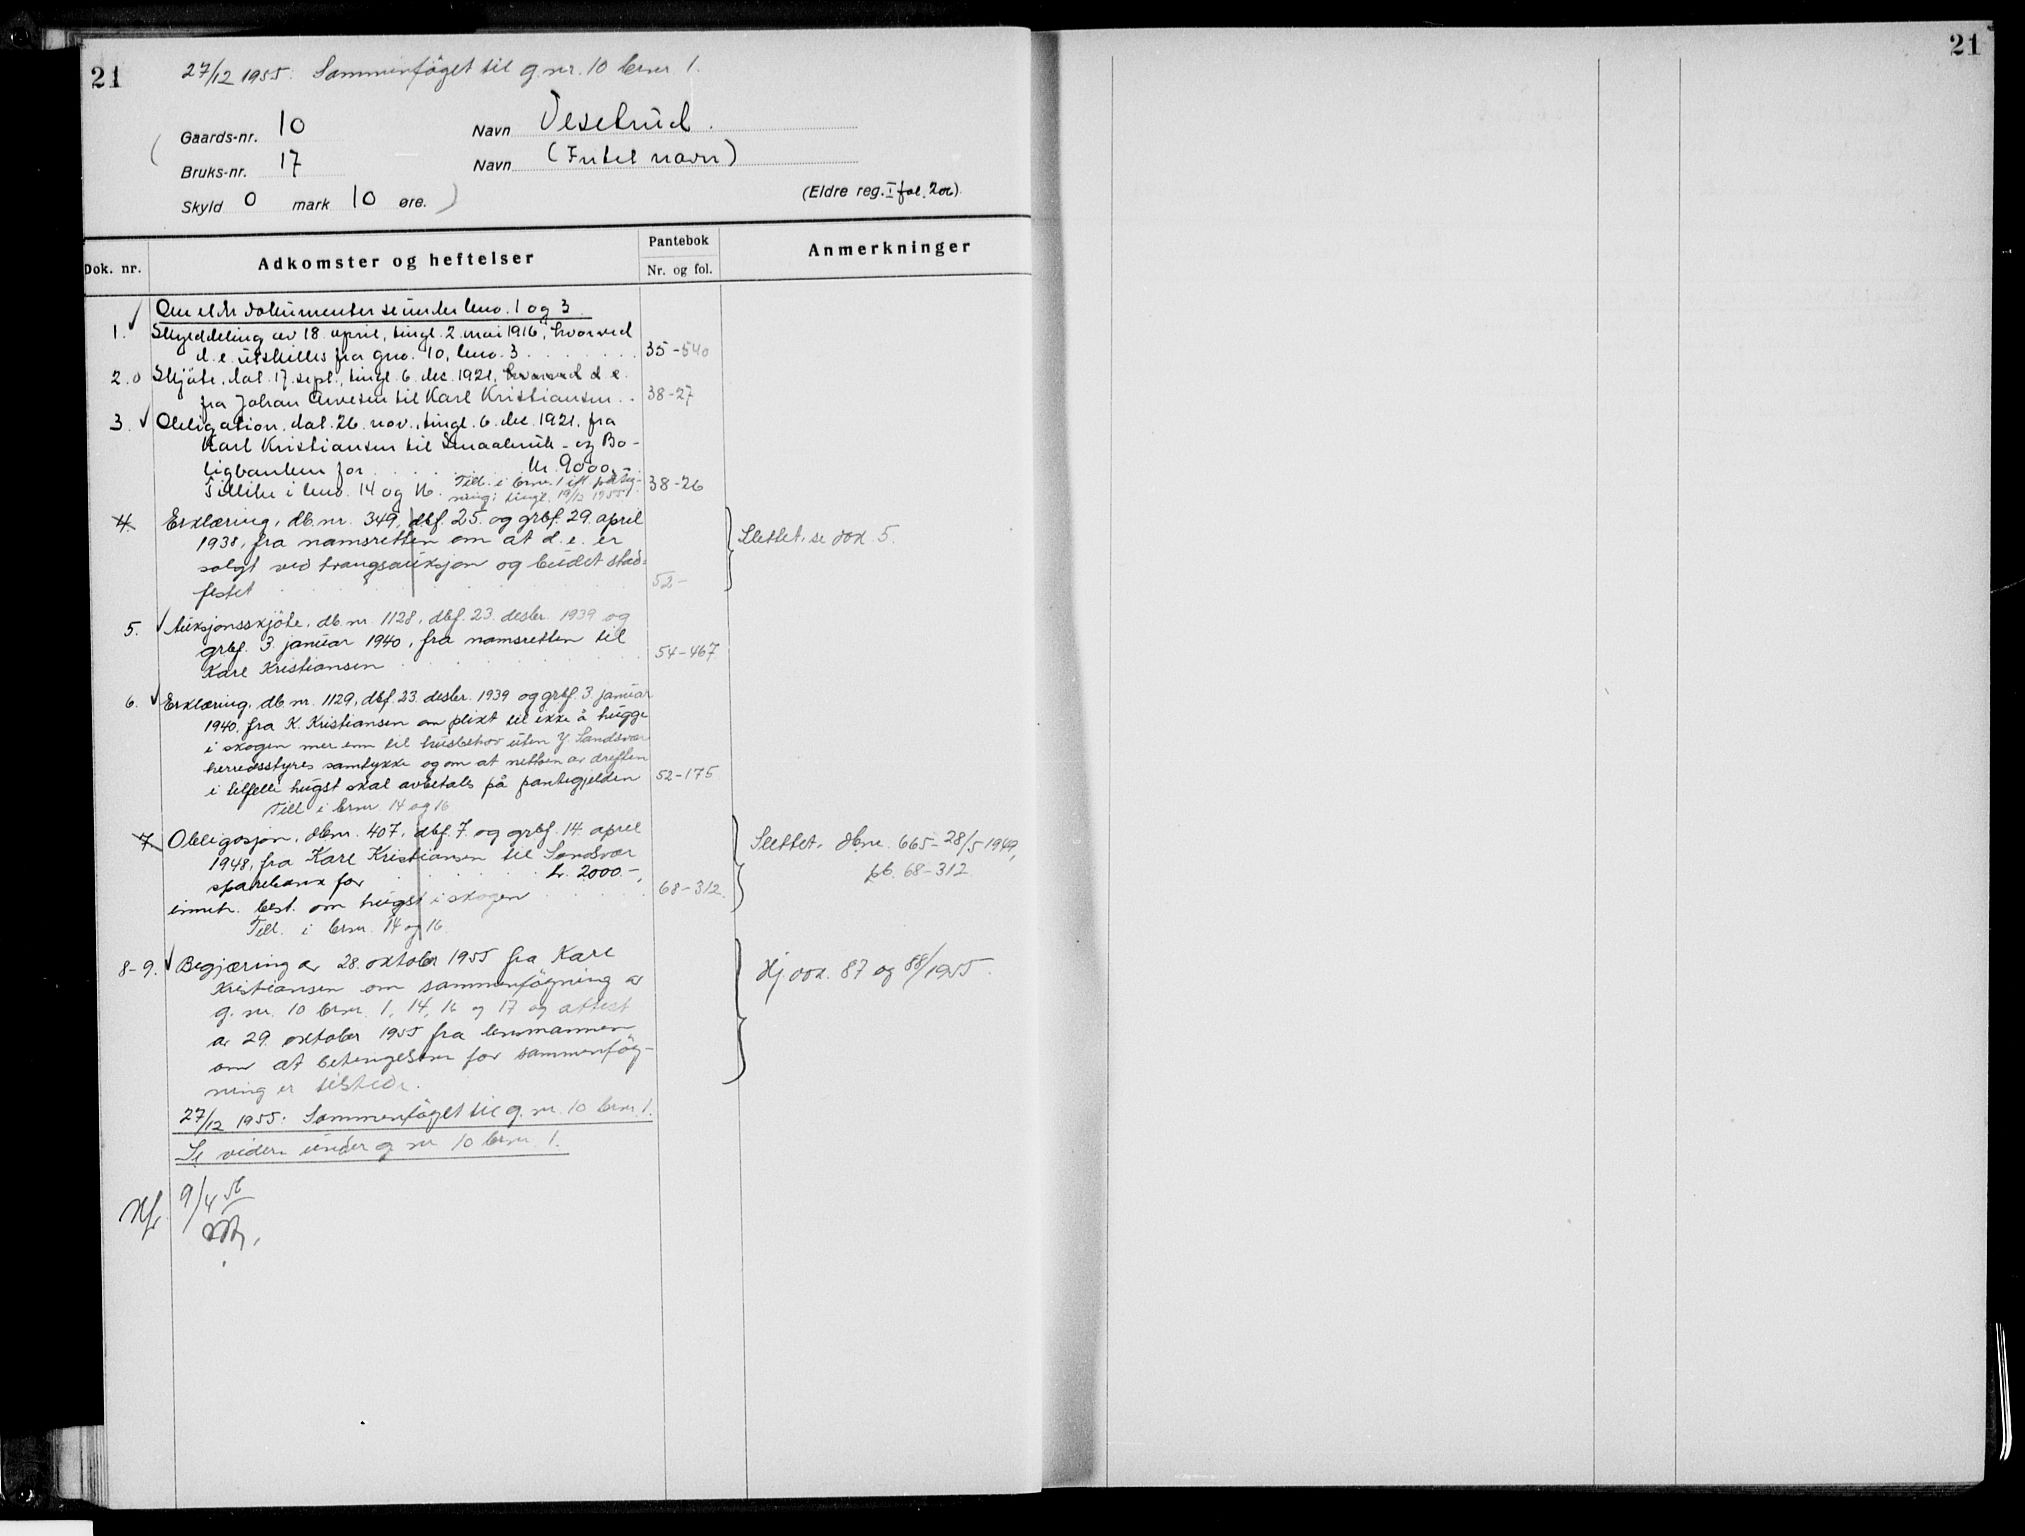 21
21
27/12 1955: Sammenføyet til g.nr. 10 brnr. 1.
Gaards-nr. 10 Navn Vesetrud.
Bruks-nr. 17 Navn (Intet navn)
Skyld 0 mark 10 øre.)
(Eldre reg. I fol. 200)
Dok. nr. Adkomster og heftelser Pantebok Anmerkninger
Nr. og fol.
Om eldre dokumenter se under bno. 1 og 3.
1. Skylddeling av 18. april, tingl. 2. mai 1916, hvorved
d. e. utskilles fra gno. 10, bno. 3 35-540
2. Skjøte, dat. 17. sept., tingl. 6. dec. 1921, hvorved d. e.
fra Johan Arvesen til Karl Kristiansen 38-27
3. Obligation, dat. 26. nov., tingl. 6. dec. 1921, fra
Karl Kristiansen til Smaabruk- og Bo-
ligbanken for kr. 9000,
Tillike i bno. 14 og 16. Till. i brnr. 1 ifl. påteg- 38-26
ning, tingl. 19/12 1955
4. Erklæring, db.nr. 349, dbf. 25. og grbf. 29. april
1938, fra namsretten om at d. e. er Slettet, se dok. 5.
solgt ved tvangsauksjon og budet stad-
festet 52-
5. Auksjonsskjøte, db.nr. 1128, dbf. 23. desbr. 1939 og
grbf. 3. januar 1940, fra namsretten til
Karl Kristiansen 54-467
6. Erklæring, db.nr. 1129, dbf. 23. desbr. 1939 og grbf. 3. januar
1940, fra K. Kristiansen om plikt til ikke å hugge
i skogen mer enn til husbehov uten Y. Sandsvær
herredsstyres samtykke og om at netton av driften
i tilfelle hugst skal avbetales på pantegjelden 52-175
Till. i brnr. 14 og 16
7. Obligasjon, dbnr. 407, dbf. 7. og grbf. 14. april
1948, fra Karl Kristiansen til Sandsvær Slettet. dbnr. 665-28/5 1949,
sparebank for kr. 2000.-, pb. 68-312.
inneh. best. om hugst i skogen 68-312.
Till. i brnr. 14 og 16.
8-9. Begjæring av 28. oktober 1955 fra Karl
Kristiansen om sammenføyning av Hj.dok. 87 og 88/1955.
g. nr. 10 brnr. 1, 14, 16 og 17 og attest
av 29. oktober 1955 fra lensmannen
om at betingelsene for sammenføy-
ning er tilstede.
27/12 1955: Sammenføyet til g. nr. 10 brnr. 1.
Se videre under g nr 10 brnr. 1.
9/4 56